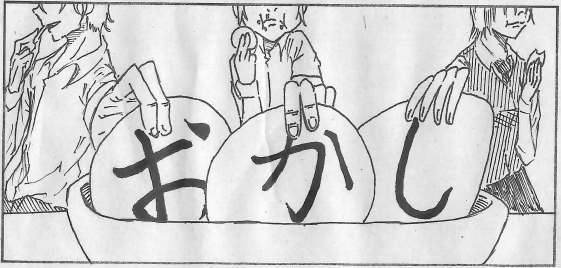 おかし